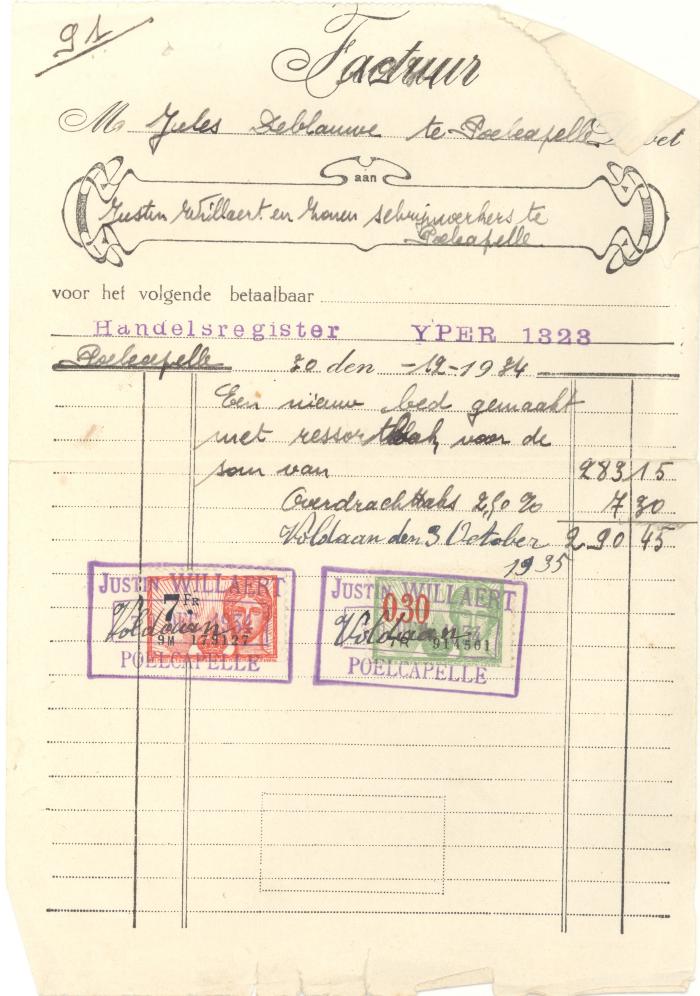 91
Factuur
Mr Jules Deblauwe te Poelcapelle
aan
Justin Willaert en Zonen schrijnwerkers te
Poelcapelle
voor het volgende betaalbaar
Handelsregister YPER 1323
Poelcapelle 30 den -12-1934
Een nieuw bed gemaakt
met ressortbak voor de
som van 283 15
Overdrachttaks 2,50 % 7 30
Voldaan den 3 October 290 45
1935
JUSTIN WILLAERT
7 FR
Voldaan
9M 179127
POELCAPELLE
JUSTIN WILLAERT
0.30
Voldaan
914501
POELCAPELLE